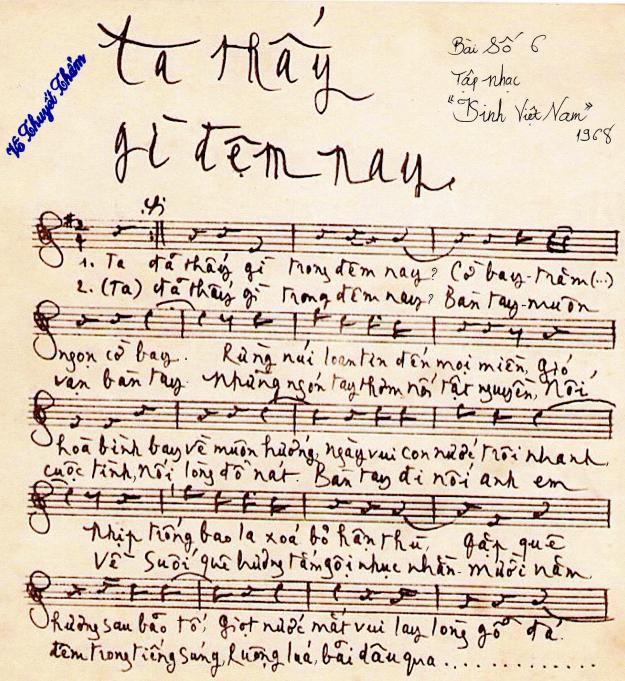 Ta thấy
gì đêm nay.
Bài Số 6
Tập nhạc
"Kinh Việt Nam"
1968
Võ Thuyết Thảm
1. Ta đã thấy gì trong đêm nay? Cờ bay trăm (...)
2. (Ta) đã thấy gì trong đêm nay? Bàn tay muôn
ngọn cờ bay. Rừng núi loan tin đến mọi miền, gió
vạn bàn tay. Những ngón tay thơm nối tật nguyền, Nối
hoà bình bay về muôn hướng, ngày vui con nước trôi nhanh,
cuộc tình, nối lòng đổ nát. Bàn tay đi nối anh em
nhịp trống bao la xoá bỏ hận thù, gặp quê
về. Suối quê hương tắm gội nhục nhằn. mười năm
hương sau bão tố, giọt nước mắt vui lay lòng gỗ đá.
đêm trong tiếng súng, ruộng lúa, bãi dâu qua . . . . . . . . . . . . .